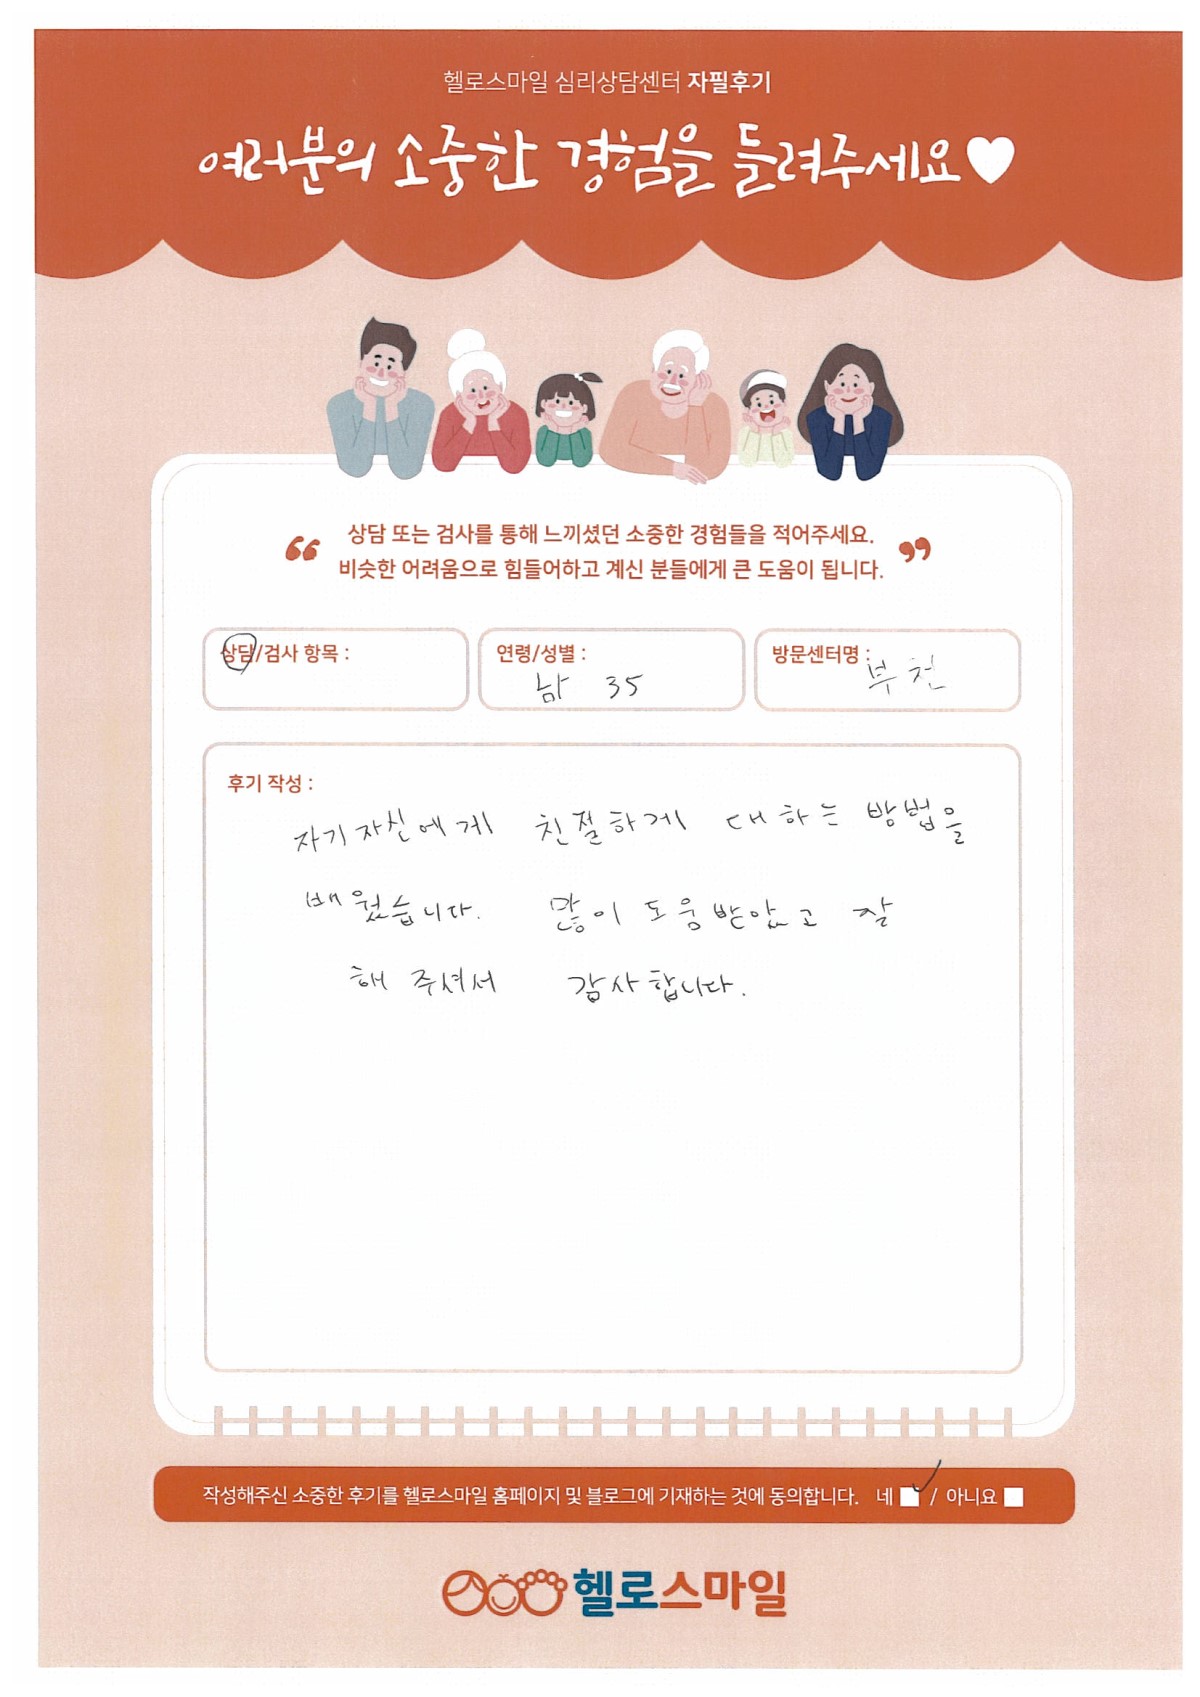 헬로스마일 심리상담센터 자필후기
여러분의 소중한 경험을 들려주세요
상담 또는 검사를 통해 느끼셨던 소중한 경험들을 적어주세요.
비슷한 어려움으로 힘들어하고 계신 분들에게 큰 도움이 됩니다.
상담/검사 항목 :
연령/성별 :
남 35
방문센터명 :
부천
후기 작성 :
자기 자신에게 친절하게 대하는 방법을
배웠습니다. 많이 도움 받았고 잘
해 주셔서 감사합니다.
작성해주신 소중한 후기를 헬로스마일 홈페이지 및 블로그에 기재하는 것에 동의합니다. 네 / 아니요
헬로스마일